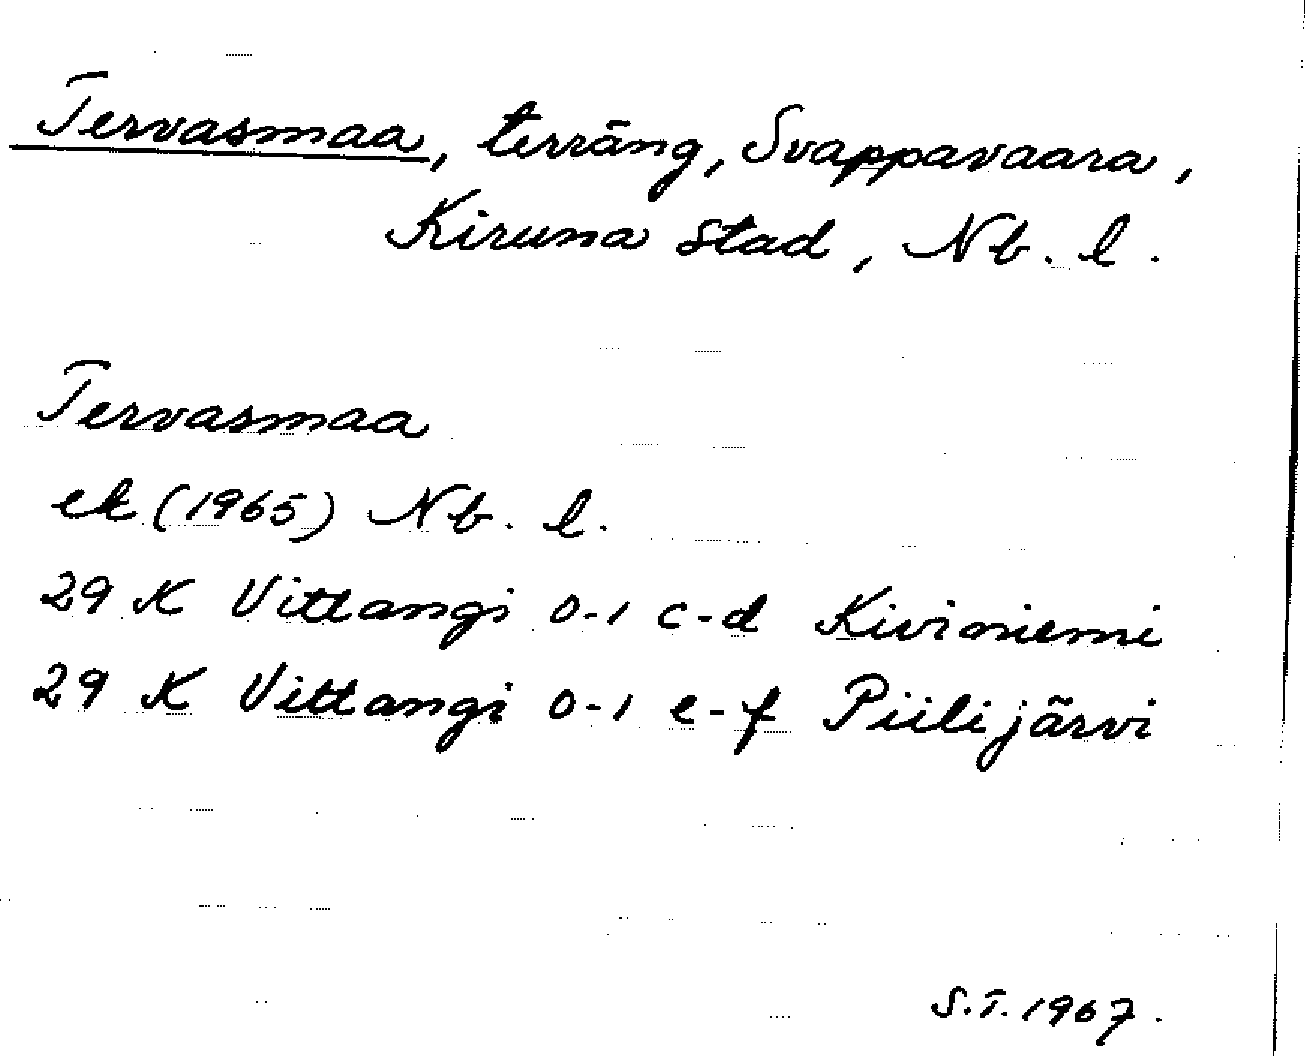 Tervasmaa, terräng, Svappavaara,
Kiruna stad, Nb. l.
Tervasmaa
ek (1965) Nb. l.
29 K Vittangi 0-1 c-d Kiviniemi
29 K Vittangi 0-1 e-f Piilijärvi
S.T. 1967.